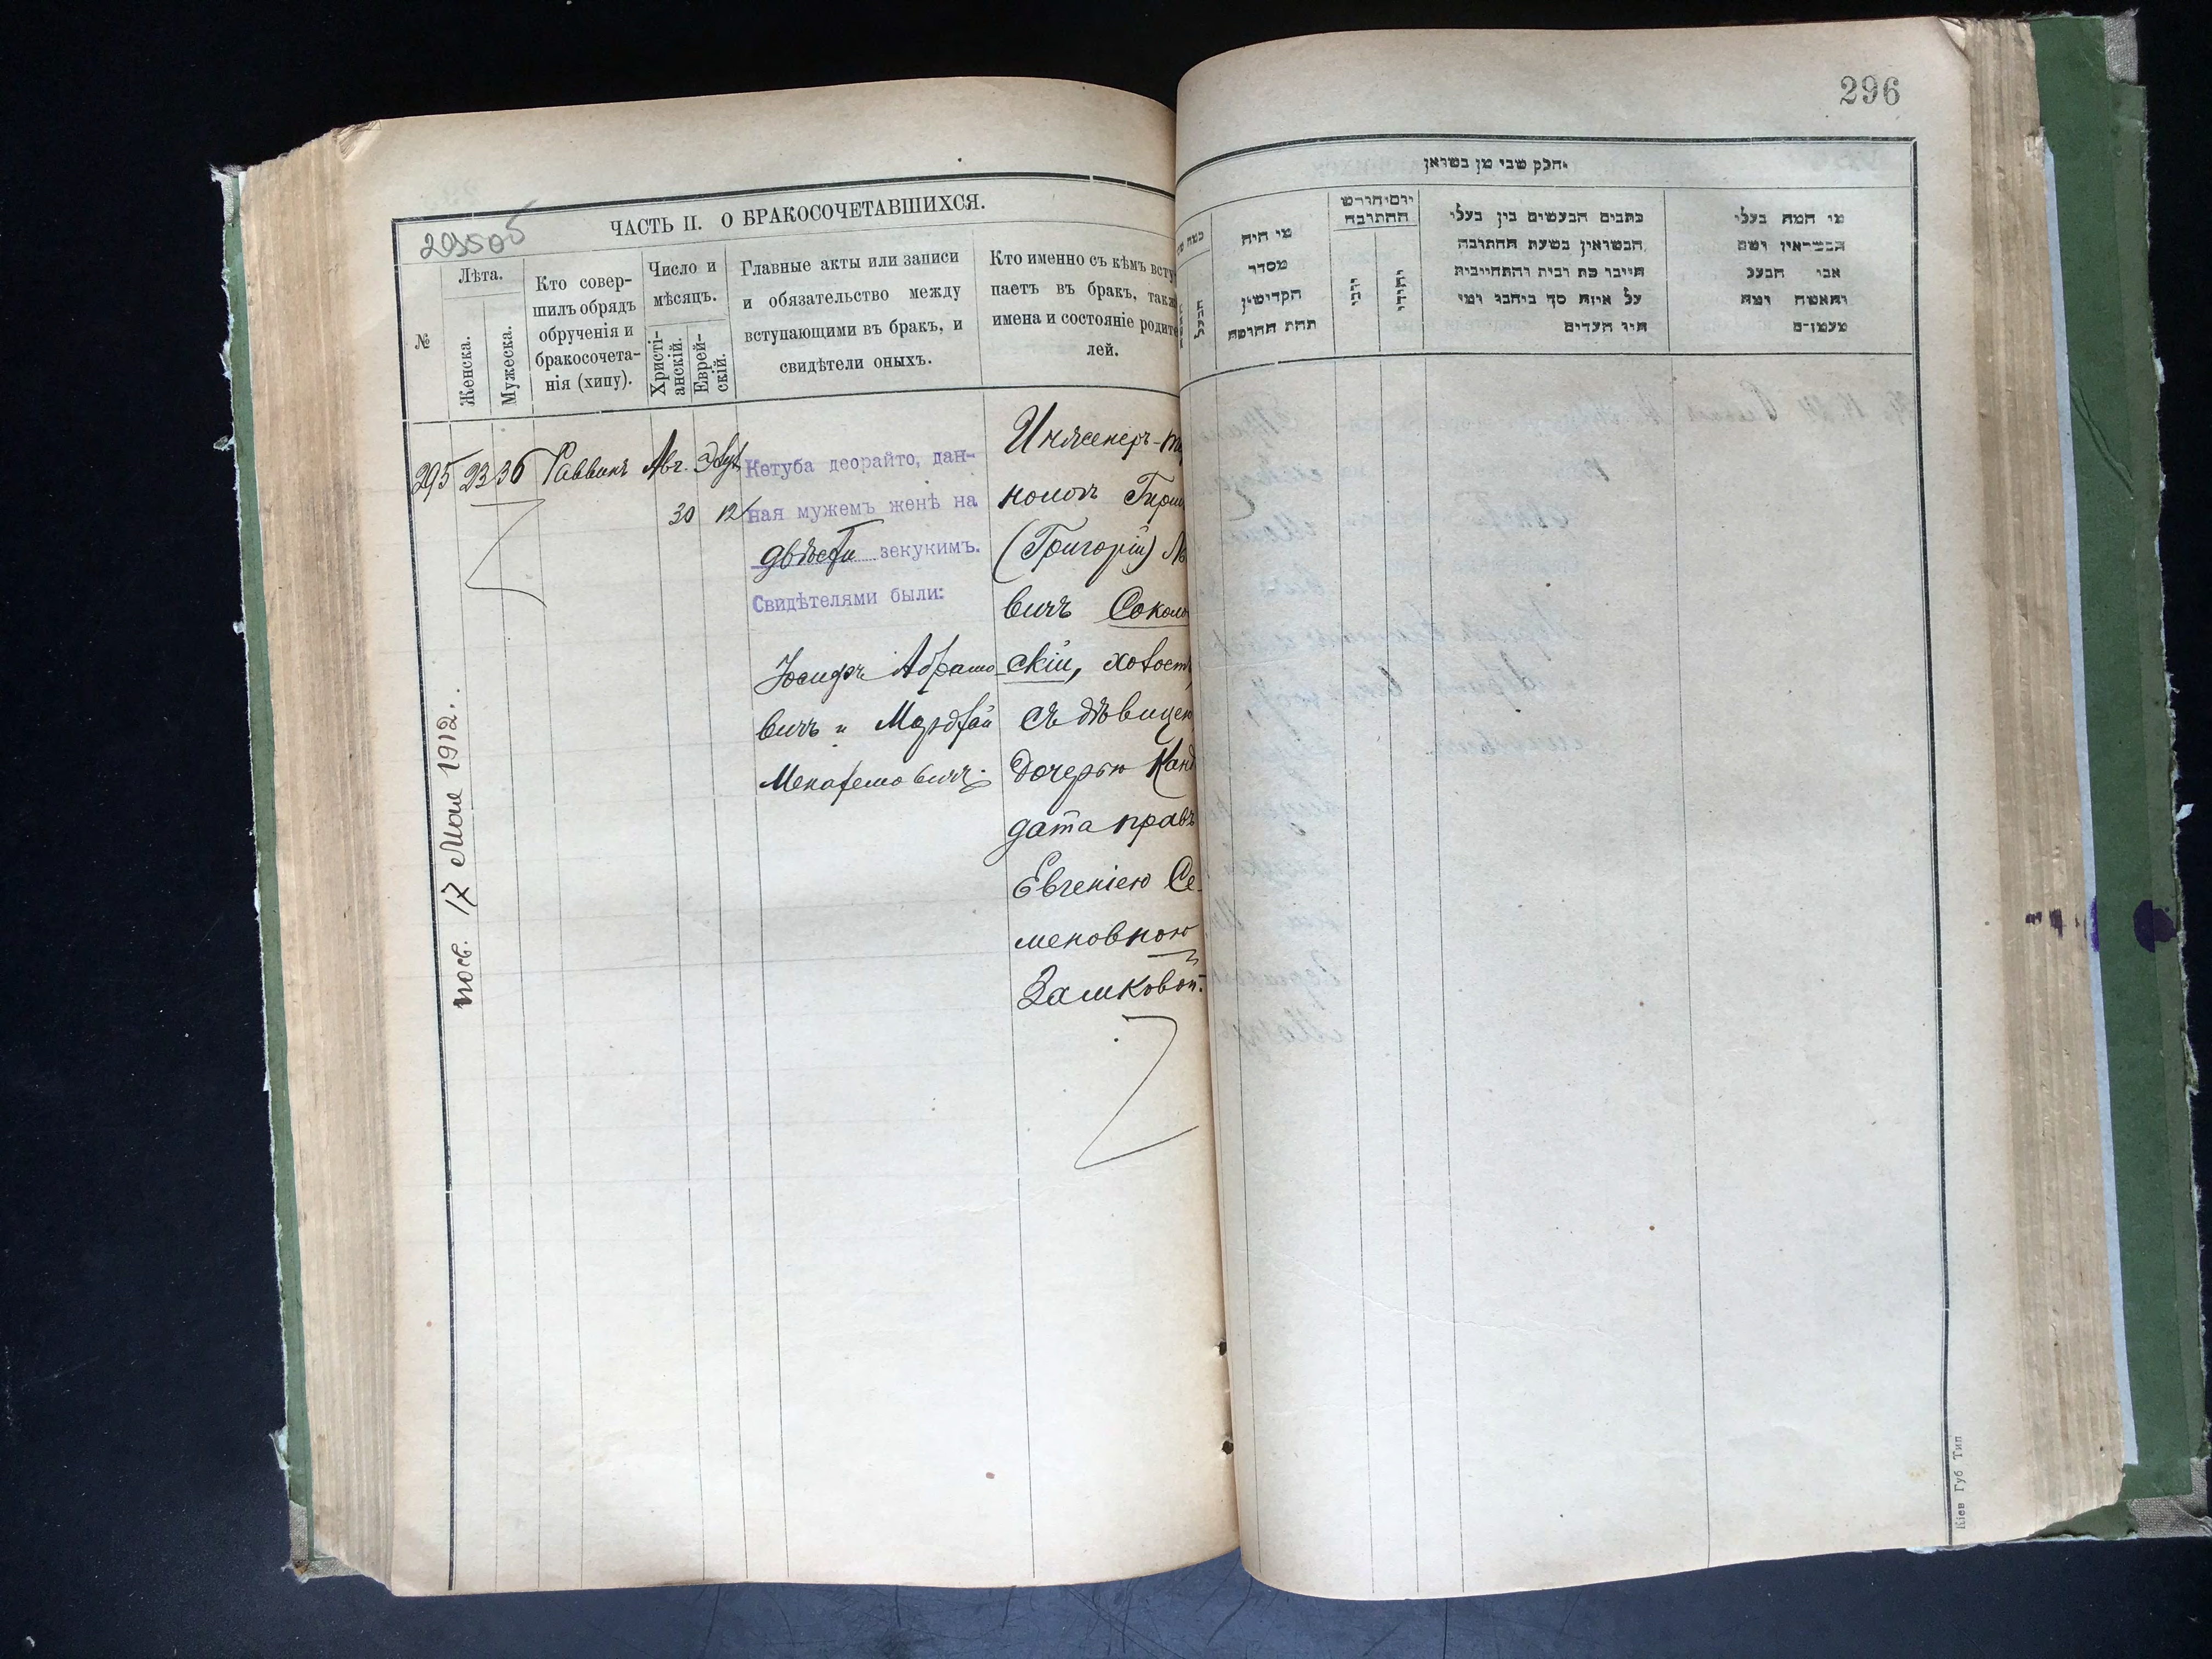 296
293505
ЧАСТЬ II. О БРАКОСОЧЕТАВШИХСЯ.
№
Лѣта.
Женска.
Мужеска.
Кто совер-
шилъ обрядъ
обрученія и
бракосочета-
нія (хипу).
Число и
мѣсяцъ.
Христі-
анскій.
Еврей-
скій.
Главные акты или записи
и обязательство между
вступающими въ бракъ, и
свидѣтели оныхъ.
Кто именно съ кѣмъ всту
паетъ въ бракъ, также
имена и состояніе родите
лей.
295 23 36 Раввинъ Авг. Элул
30 12
Кетуба деорайто, дан-
ная мужемъ женѣ на
двѣсти зекукимъ.
Свидѣтелями были:
Іосифъ Абрамо-
вичъ и Мордхай
Менахемовичъ.
Инженеръ-т
нологъ Герш
(Григорій) Ль
вичъ Соколо
скій, холост
съ дѣвицею
дочерью Канд
дата правъ
Евгеніею Се-
меновною
Зашковой.
посв. 17 Мая 1912.
חלק שני מן נשואין
מי המה בעלי
הנשואין ושם
אבי הבעל
והאשה ומה
מעמדם
כתבים הנעשים בין בעלי
הנשואין בשעת החתונה
על איזה סך ביחבו ומי
היו העדים
יום וחודש
החתונה
יהודי
מי היה
מסדר
הקדושין
תחת החופה
הבעל
Кіев Губ Тип